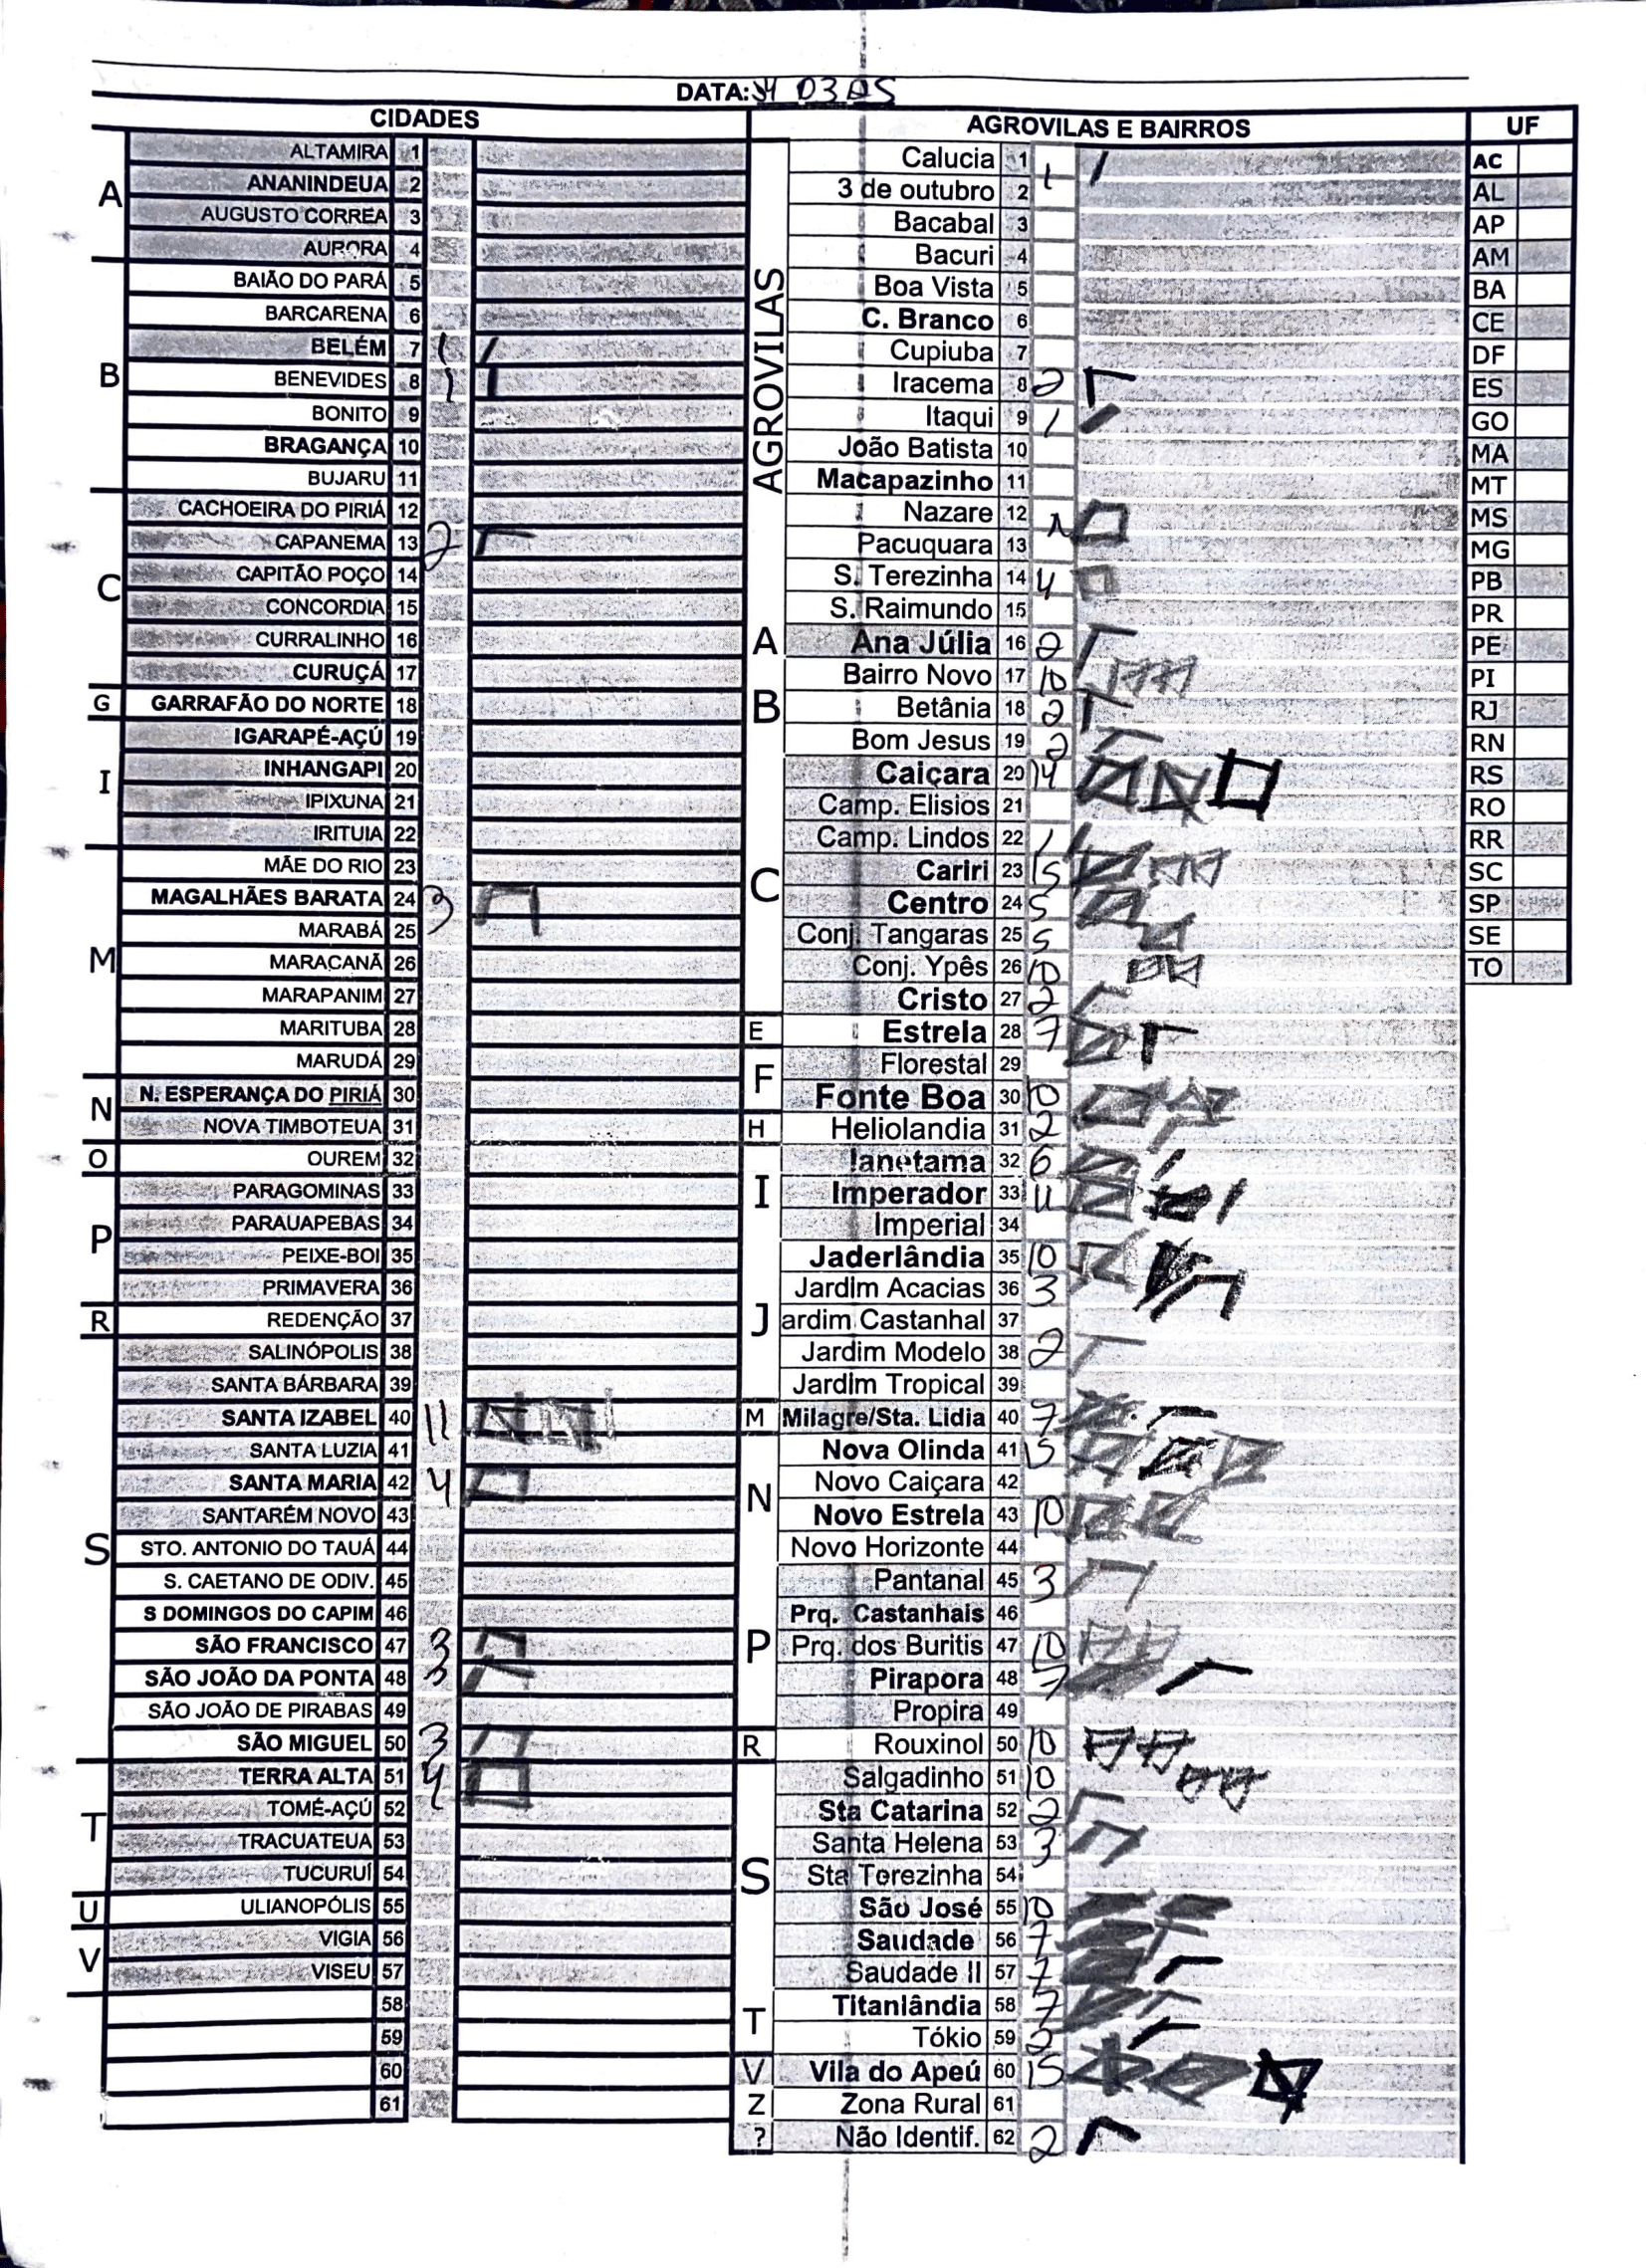 DATA: 03
CIDADES
A
ALTAMIRA 1
ANANINDEUA 2
AUGUSTO CORREA 3
AURORA 4
B
BAIÃO DO PARÁ 5
BARCARENA 6
BELÉM 7 1
BENEVIDES 8 1
BONITO 9
BRAGANÇA 10
BUJARU 11
C
CACHOEIRA DO PIRIÁ 12
CAPANEMA 13 2
CAPITÃO POÇO 14
CONCORDIA 15
CURRALINHO 16
CURUÇÁ 17
G
GARRAFÃO DO NORTE 18
I
IGARAPÉ-AÇÚ 19
INHANGAPI 20
IPIXUNA 21
IRITUIA 22
M
MÃE DO RIO 23
MAGALHÃES BARATA 24 3
MARABÁ 25
MARACANÃ 26
MARAPANIM 27
MARITUBA 28
MARUDÁ 29
N
N. ESPERANÇA DO PIRIÁ 30
NOVA TIMBOTEUA 31
O
OUREM 32
P
PARAGOMINAS 33
PARAUAPEBAS 34
PEIXE-BOI 35
PRIMAVERA 36
R
REDENÇÃO 37
S
SALINÓPOLIS 38
SANTA BÁRBARA 39
SANTA IZABEL 40 11
SANTA LUZIA 41
SANTA MARIA 42 4
SANTARÉM NOVO 43
STO. ANTONIO DO TAUÁ 44
S. CAETANO DE ODIV. 45
S DOMINGOS DO CAPIM 46
SÃO FRANCISCO 47 3
SÃO JOÃO DA PONTA 48
SÃO JOÃO DE PIRABAS 49
SÃO MIGUEL 50 3
T
TERRA ALTA 51 4
TOMÉ-AÇÚ 52
TRACUATEUA 53
TUCURUÍ 54
U
ULIANOPÓLIS 55
V
VIGIA 56
VISEU 57
58
59
60
61
AGROVILAS E BAIRROS
AGROVILAS
Calucia 1 1
3 de outubro 2
Bacabal 3
Bacuri 4
Boa Vista 5
C. Branco 6
Cupiuba 7
Iracema 8 2
Itaqui 9 1
João Batista 10
Macapazinho 11
Nazare 12
Pacuquara 13
S. Terezinha 14 4
S. Raimundo 15
A
Ana Júlia 16 2
B
Bairro Novo 17 10
Betânia 18 2
Bom Jesus 19 2
C
Caiçara 20 14
Camp. Elisios 21
Camp. Lindos 22 1
Cariri 23 15
Centro 24 5
Conj. Tangaras 25 5
Conj. Ypês 26 10
Cristo 27 2
E
Estrela 28 7
F
Florestal 29
Fonte Boa 30 10
H
Heliolandia 31 2
I
Ianetama 32 6
Imperador 33 11
Imperial 34
J
Jaderlândia 35 10
Jardim Acacias 36 3
ardim Castanhal 37
Jardim Modelo 38 2
Jardim Tropical 39
M
Milagre/Sta. Lidia 40 7
N
Nova Olinda 41 15
Novo Caiçara 42
Novo Estrela 43 10
Novo Horizonte 44
P
Pantanal 45 3
Prq. Castanhais 46
Prq. dos Buritis 47 10
Pirapora 48 7
Propira 49
R
Rouxinol 50 10
S
Salgadinho 51 10
Sta Catarina 52 2
Santa Helena 53 3
Sta Terezinha 54
São José 55 10
Saudade 56 7
Saudade II 57 7
T
Titanlândia 58 7
Tókio 59 2
V
Vila do Apeú 60 15
Z
Zona Rural 61
?
Não Identif. 62 2
UF
AC
AL
AP
AM
BA
CE
DF
ES
GO
MA
MT
MS
MG
PB
PR
PE
PI
RJ
RN
RS
RO
RR
SC
SP
SE
TO